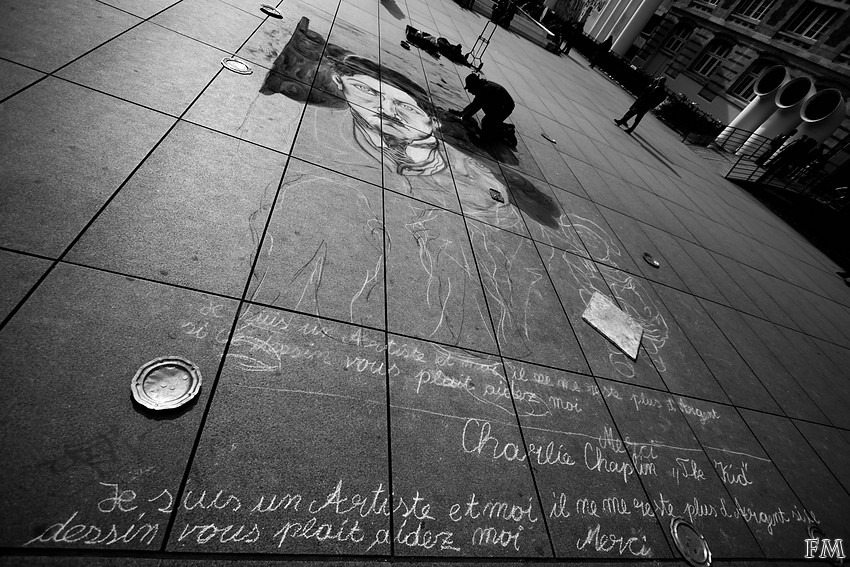 Je suis un Artiste et moi il ne me reste plus d'Argent
si ce dessin vous plait aidez moi
Merci
Charlie Chaplin „The Kid"
Je suis un Artiste et moi il ne me reste plus d'Argent si se
dessin vous plait aidez moi Merci
FM